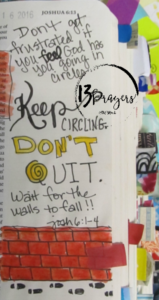 JOSHUA 6:5
Don't get
frustrated if
you feel God has
you going in
circles!
13
prayers
Keep
CIRCLING.
DON'T
QUIT.
Wait for the
walls to fall!!
Josh 6:1-4